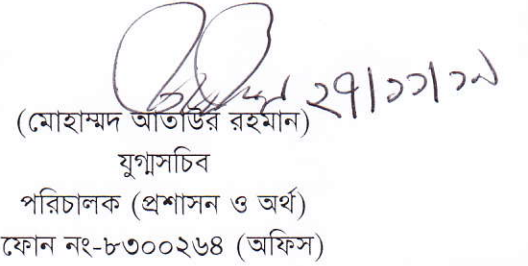 ২৭|১১|১৯
(মোহাম্মদ আতাউর রহমান)
যুগ্মসচিব
পরিচালক (প্রশাসন ও অর্থ)
ফোন নং-৮৩০০২৬৪ (অফিস)